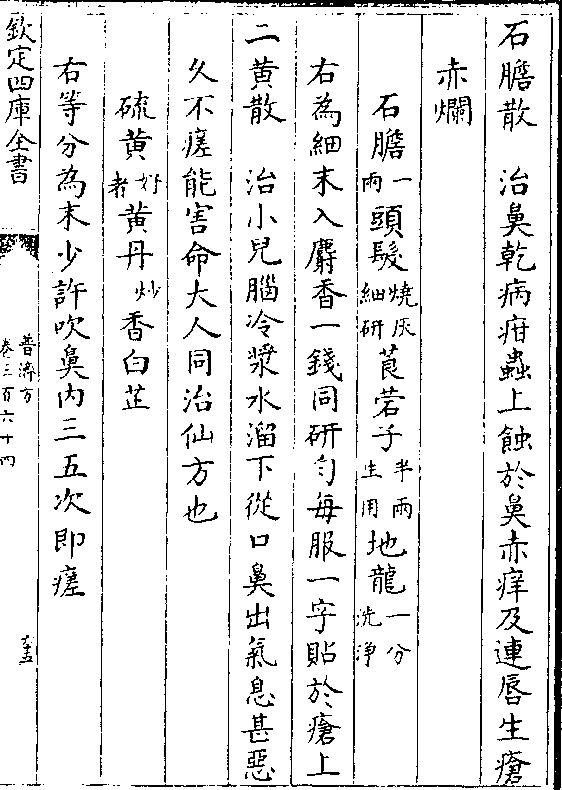 石膽散　治鼻乾病疳蟲上蝕於鼻赤痒及連唇生瘡
赤爛
石膽一兩頭髮燒灰細研莨菪子半兩生用地龍一分洗淨
右為細末入麝香一錢同研勻每服一字貼於瘡上
二黄散　治小兒腦冷漿水溜下從口鼻出氣息甚惡
久不瘥能害命大人同治仙方也
硫黄好者黄丹炒香白芷
右等分為末少許吹鼻内三五次即瘥
欽定四庫全書
普濟方
卷三百六十四